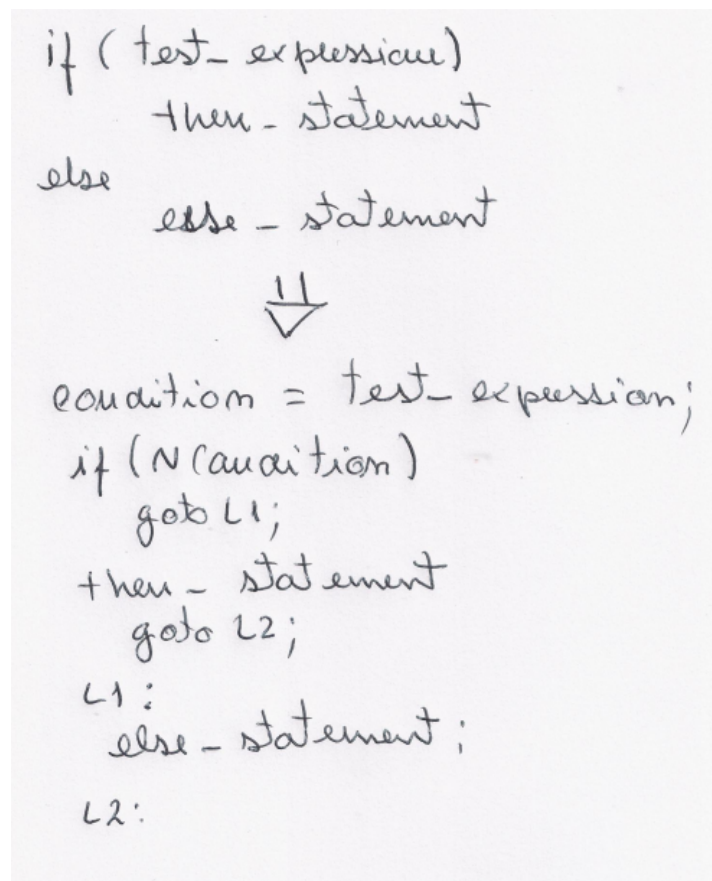 if (test_expression)
then - statement
else
else - statement
condition = test_expression;
if (~condition)
goto L1;
then - statement
goto L2;
L1:
else - statement;
L2: